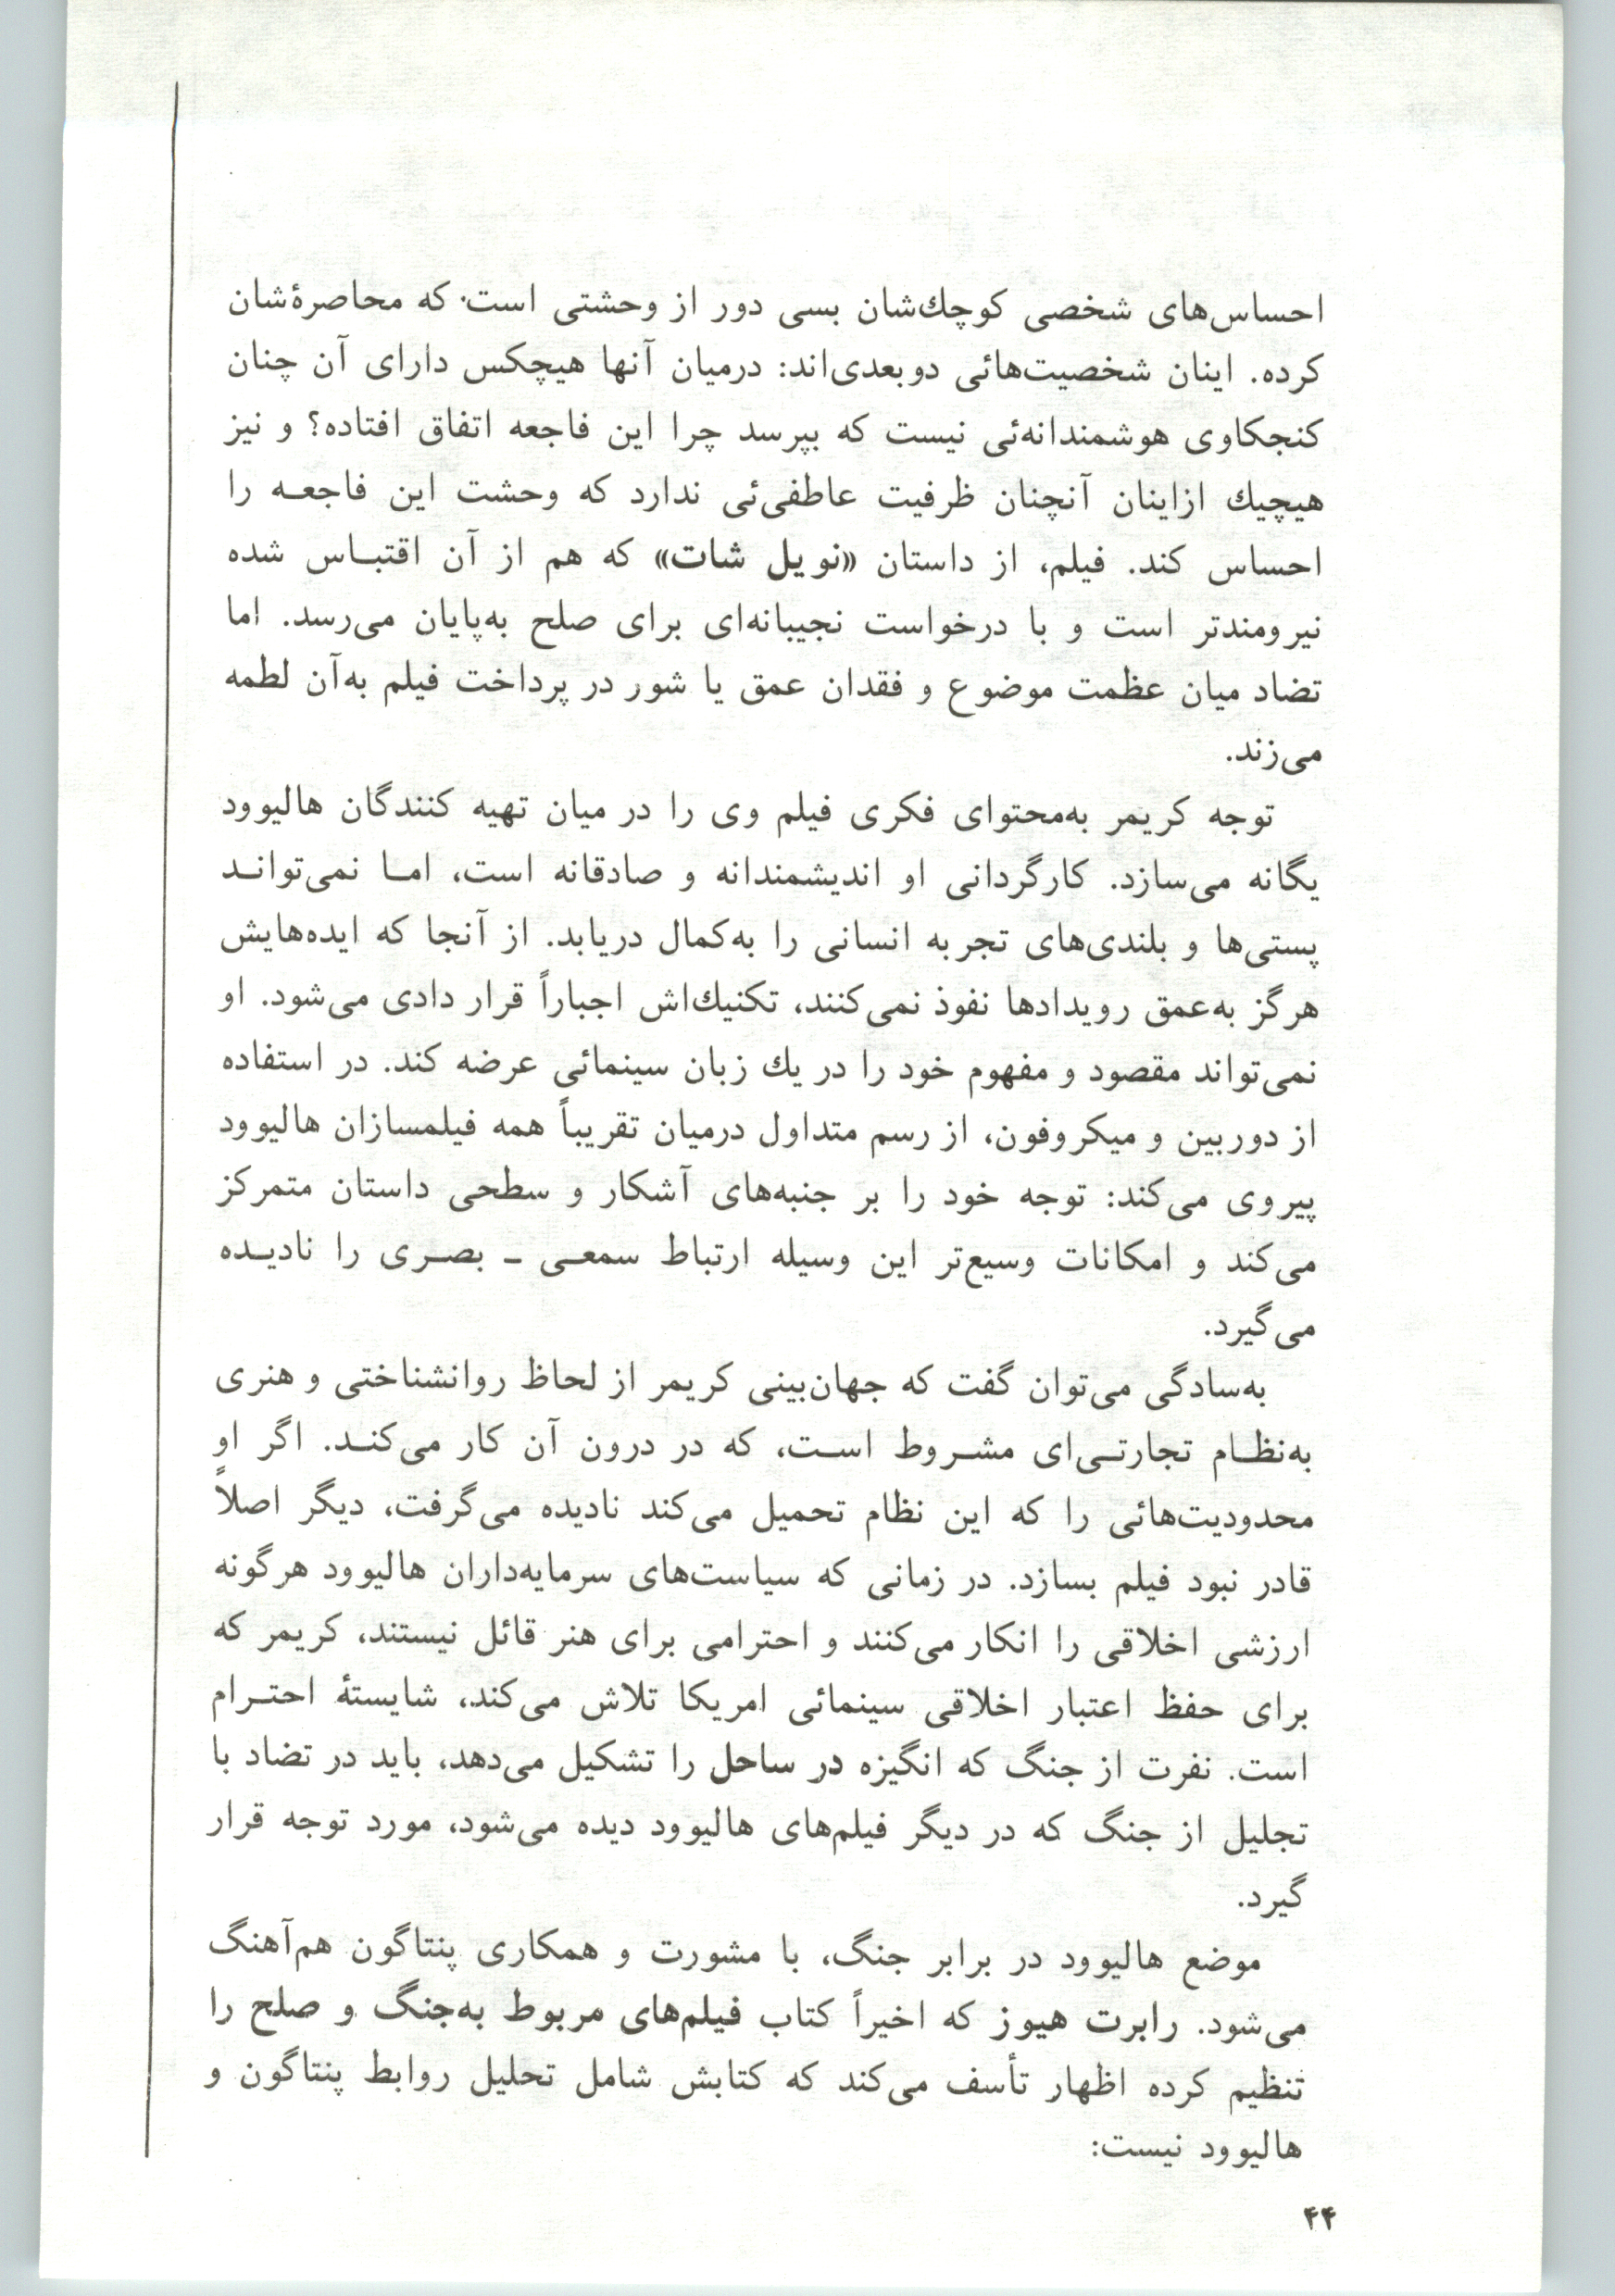 احساس‌های شخصی کوچك‌شان بسی دور از وحشتی است که محاصرهٔ‌شان
کرده. اینان شخصیت‌هائی دوبعدی‌اند: درمیان آنها هیچکس دارای آن چنان
کنجکاوی هوشمندانه‌ئی نیست که بپرسد چرا این فاجعه اتفاق افتاده؟ و نیز
هیچیك ازاینان آنچنان ظرفیت عاطفی‌ئی ندارد که وحشت این فاجعـه را
احساس کند. فیلم، از داستان «نویل شات» که هم از آن اقتبـاس شده
نیرومندتر است و با درخواست نجیبانه‌ای برای صلح به‌پایان می‌رسد. اما
تضاد میان عظمت موضوع و فقدان عمق یا شور در پرداخت فیلم به‌آن لطمه
می‌زند.
توجه کریمر به‌محتوای فکری فیلم وی را در میان تهیه کنندگان هالیوود
یگانه می‌سازد. کارگردانی او اندیشمندانه و صادقانه است، امـا نمی‌توانـد
پستی‌ها و بلندی‌های تجربه انسانی را به‌کمال دریابد. از آنجا که ایده‌هایش
هرگز به‌عمق رویدادها نفوذ نمی‌کنند، تکنیك‌اش اجباراً قرار دادی می‌شود. او
نمی‌تواند مقصود و مفهوم خود را در یك زبان سینمائی عرضه کند. در استفاده
از دوربین و میکروفون، از رسم متداول درمیان تقریباً همه فیلمسازان هالیوود
پیروی می‌کند: توجه خود را بر جنبه‌های آشکار و سطحی داستان متمرکز
می‌کند و امکانات وسیع‌تر این وسیله ارتباط سمعـی ـ بصـری را نادیـده
می‌گیرد.
به‌سادگی می‌توان گفت که جهان‌بینی کریمر از لحاظ روانشناختی و هنری
به‌نظـام تجارتـی‌ای مشـروط اسـت، که در درون آن کار می‌کنـد. اگر او
محدودیت‌هائی را که این نظام تحمیل می‌کند نادیده می‌گرفت، دیگر اصلاً
قادر نبود فیلم بسازد. در زمانی که سیاست‌های سرمایه‌داران هالیوود هرگونه
ارزشی اخلاقی را انکار می‌کنند و احترامی برای هنر قائل نیستند، کریمر که
برای حفظ اعتبار اخلاقی سینمائی امریکا تلاش می‌کند، شایستهٔ احتـرام
است. نفرت از جنگ که انگیزه در ساحل را تشکیل می‌دهد، باید در تضاد با
تجلیل از جنگ که در دیگر فیلم‌های هالیوود دیده می‌شود، مورد توجه قرار
گیرد.
موضع هالیوود در برابر جنگ، با مشورت و همکاری پنتاگون هم‌آهنگ
می‌شود. رابرت هیوز که اخیراً کتاب فیلم‌های مربوط به‌جنگ و صلح را
تنظیم کرده اظهار تأسف می‌کند که کتابش شامل تحلیل روابط پنتاگون و
هالیوود نیست:
۴۴